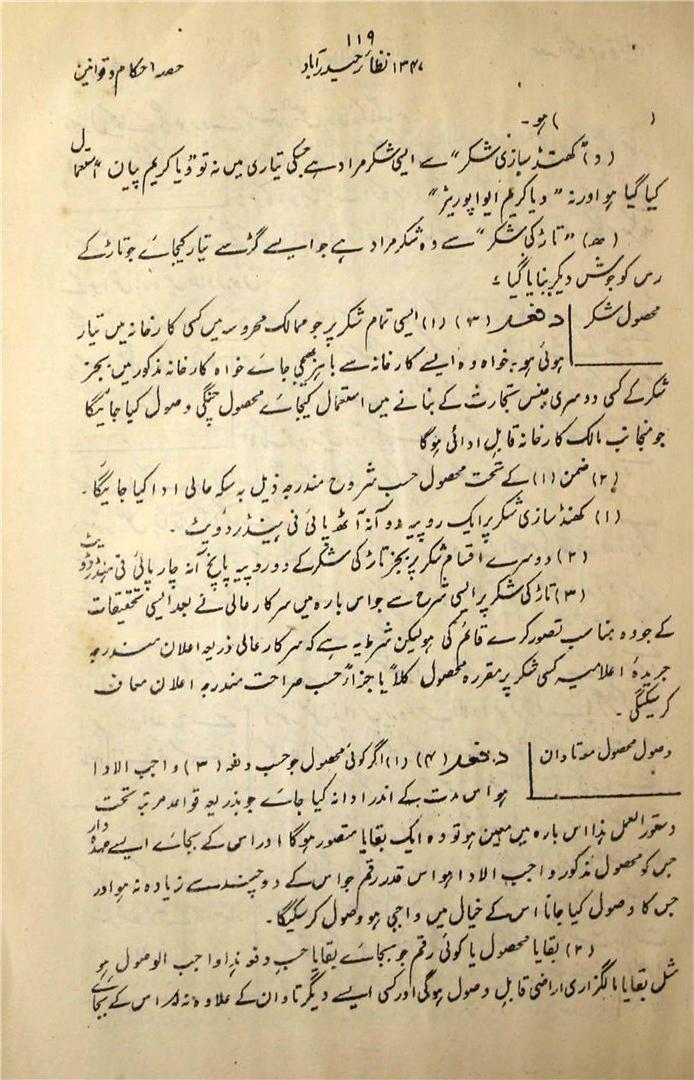 ۱۱۹
حصہ احکام و قوانین
۱۳۴۷ نظائر حیدرآباد
( ) ہو۔
(د) "کھنڈسازی شکر" سے ایسی شکر مراد ہے جسکی تیاری میں نہ تو "ویاکریم پیان" استعمال
کیا گیا ہو اور نہ "ویاکریم ایواپوریٹر"
(ھ) "تاڑ کی شکر" سے وہ شکر مراد ہے جو ایسے گڑ سے تیار کیجائے جو تاڑ کے
رس کو جوش دیکر بنایا گیا۔
محصول شکر
دفعہ (۳) (۱) ایسی تمام شکر پر جو ممالک محروسہ میں کسی کارخانہ میں تیار
ہوئی ہو۔ خواہ وہ ایسے کارخانہ سے باہر بھیجی جائے خواہ کارخانہ مذکور میں بجز
شکر کے کسی دوسری جنس تجارت کے بنانے میں استعمال کیجائے محصول چنگی وصول کیا جائیگا
جو منجانب مالک کارخانہ قابل ادائی ہوگا
(۲) ضمن (۱) کے تحت محصول حسب شروح مندرجہ ذیل بہ سکہ عالی ادا کیا جائیگا۔
(۱) کھنڈسازی شکر پر ایک روپیہ دو آنہ آٹھ پائی فی ہینڈرڈویٹ۔
(۲) دوسرے اقسام شکر پر بجز تاڑ کی شکر کے دو روپیہ پانچ آنہ چار پائی فی ہینڈرڈویٹ
(۳) تاڑ کی شکر پر ایسی شرح سے جو اس بارہ میں سرکار عالی نے بعد ایسی تحقیقات
کے جو وہ مناسب تصور کرے قائم کی ہو لیکن شرط یہ ہے کہ سرکار عالی ذریعہ اعلان مندرجہ
جریدۂ اعلامیہ کسی شکر پر مقررہ محصول کلاً یا جزاً حسب صراحت مندرجہ اعلان معاف
کرسکیگی۔
وصول محصول معہ تاوان
دفعہ (۴) (۱) اگر کوئی محصول جو حسب دفعہ (۳) واجب الادا
ہو اس مدت کے اندر ادا نہ کیا جائے جو بذریعہ قواعد مرتبہ تحت
دستور العمل ہذا اس بارہ میں معین ہو تو وہ ایک بقایا متصور ہوگا اور اس کے بجائے ایسے عہدہ دار
جس کو محصول مذکور واجب الادا ہو اس قدر رقم جو اس کے دوچند سے زیادہ نہ ہو اور
جس کا وصول کیا جانا اس کے خیال میں واجبی ہو وصول کرسکیگا۔
(۲) بقایا محصول یا کوئی رقم جو بجائے بقایا حسب دفعہ ہذا واجب الوصول ہو
مثل بقایا مالگزاری اراضی قابل وصول ہوگی اور کسی ایسے دیگر تاوان کے علاوہ نہ کہ اس کے بجائے